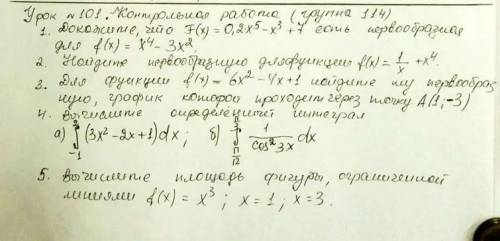 Урок № 101. Контрольная работа (группа 114)
1. Докажите, что F(x) = 0,2x⁵ - x³ + 7 есть первообразная
для f(x) = x⁴ - 3x².
2. Найдите первообразную для функции f(x) = 1/x + x⁴.
3. Для функции f(x) = 6x² - 4x + 1 найдите ту первообраз
ную, график которой проходит через точку A(1; -3)
4. Вычислите определенный интеграл
а) ∫₋₁² (3x² - 2x + 1) dx; б) ∫ 1/cos² 3x dx
5. Вычислите площадь фигуры, ограниченной
линиями f(x) = x³; x = 1; x = 3.